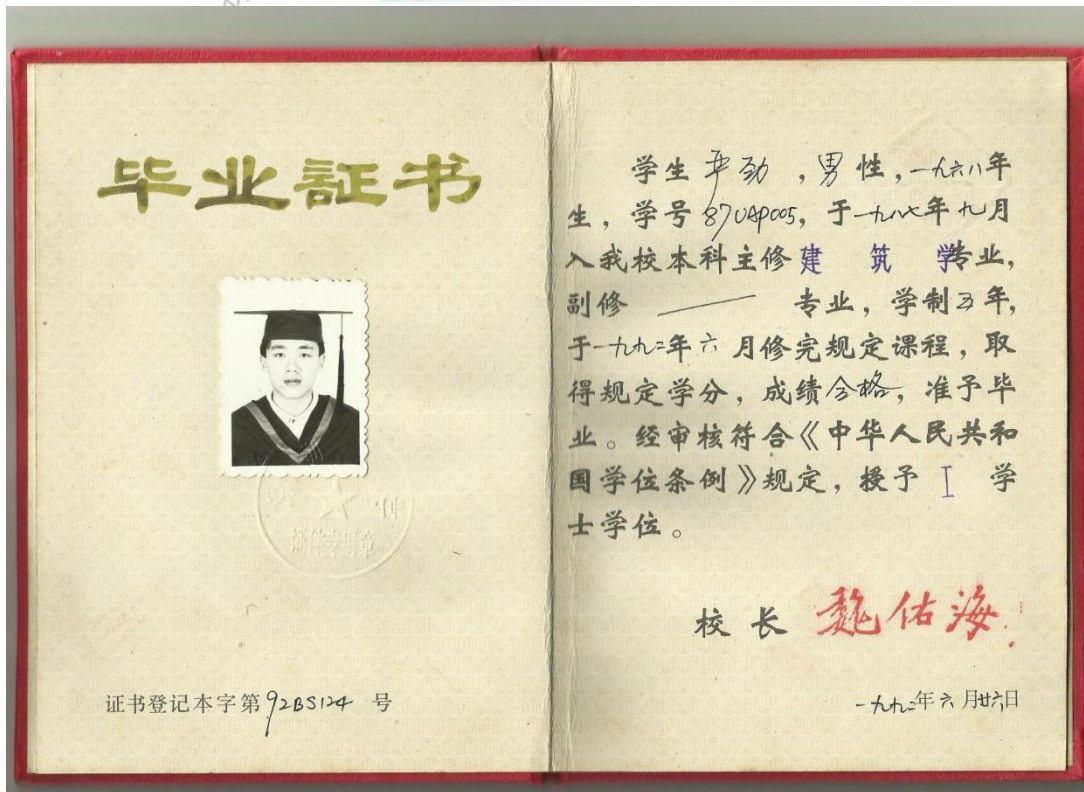 毕业証书
证书登记本字第92BS124 号
学生严劲 ，男性，一九六八年
生，学号87UAP005，于一九八七年九月
入我校本科主修建 筑 学专业，
副修 —— 专业，学制五年，
于一九九二年六 月修完规定课程，取
得规定学分，成绩合格，准予毕
业。经审核符合《中华人民共和
国学位条例》规定，授予 工 学
士学位。
校 长 魏佑海
一九九二年六月廿六日